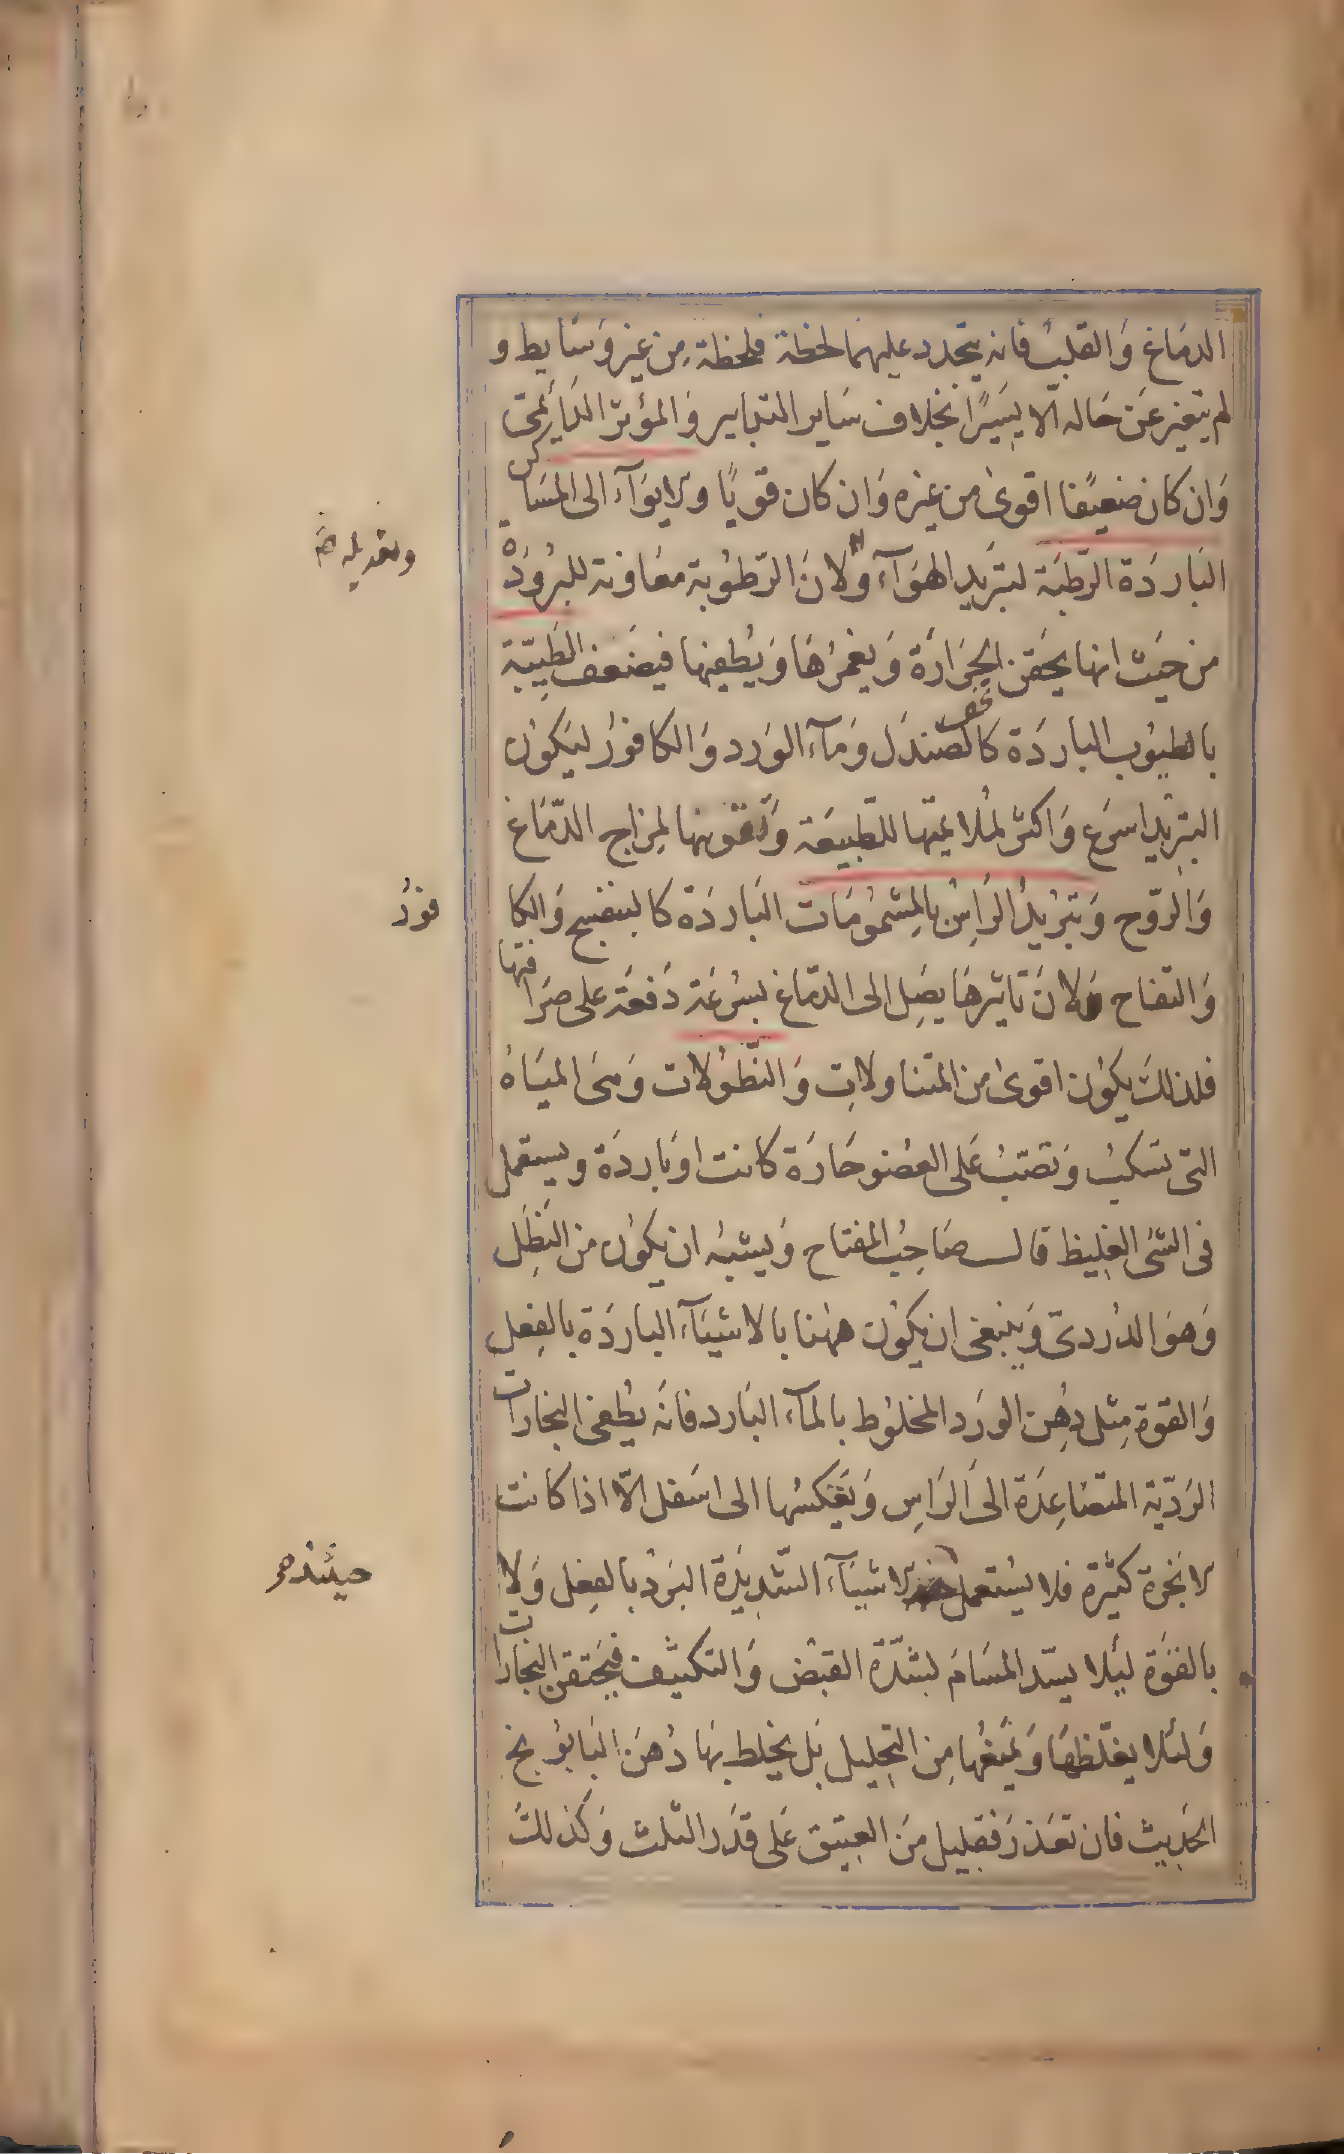 الدمَاغ وَالقلبُ فانه يتجدد عليهما لحظة فلحظة مِن غير وسَايط و
لم يتغير عَن حَاله الّا يسَيرًا بخلاف سَاير التدابير وَالمؤثرّ الدَايمى
وَان كان ضعيفًا اقوىٰ من غيره وَان كان قويًا ولايوَآء الى المسَاكن
البَاردَة الرّطبَة لتبَريد الهوَآء وَلانَ الرّطوُبة معَاونة للبرُودَة
وتعديله
من حيَث انها يحَقن الحَرَارَة وَيغمرُهَا وَيُطفيها فيضعف الطَيبّة
بالطيوُب البَاردَة كالصّندَل وَمآء الوَرد وَالكافوُر ليَكوُن
التبرَيد اسرَع وَاكثرّ لمُلايمتها للطّبيعَة وَتقويتها لمزاج الدّمَاغ
وَالروّح وَتبرَيدُ الرَاسِ بالمشموُمَات البَاردَة كالبنفسج وَالكا
فورُ
وَالتفاح وَلانَ تاثيرهَا يصَل الى الدمّاغ بسُرعَة دَفعَة عَلى صرَافتها
فلذلكَ يكوُن اقوىٰ من المتناولات وَالنّطوُلات وَهى الميَاهُ
التى تسَكبُ وَتصَبُّ عَلى العضُو حَارَة كانت اوَبارَدة ويستعمل
فى الشئ الغليظ قال صَاحِبُ المفتاح وَيشبهُ ان يكوُن من النَطَل
وَهوَ الدُردىّ وَينبغى ان يكوُن ههُنا بالاشيَآء البارَدة بالفِعل
وَالقوة مِثل دهُن الورَد المخلوُط بالمآء البَارد فانهَ يُطفى البخارات
الرَديّة المتصَاعِدَة الى الرَاسِ وَيعَكسُها الى اسَفل الّا اذا كانت
الابخرَة كثيّرة فلا يسُتعمل الاشيَآء الشّديدَة البرَدُ بالفِعل وَلا
حينئذ
بالقوَة ليَلا يسَد المسَامَ لشدّة القبَض وَالتكثيف فيحَتقن البخارات
وَلئلا يغلّظهَا وَيمَنعُها مِن التحليل بَل يخلط بهَا دُهن البَابوُنج
الحَديث فان تعَذرَ فقليل مَن العَتيق عَلى قدَر الثلث وَكذَلكَ